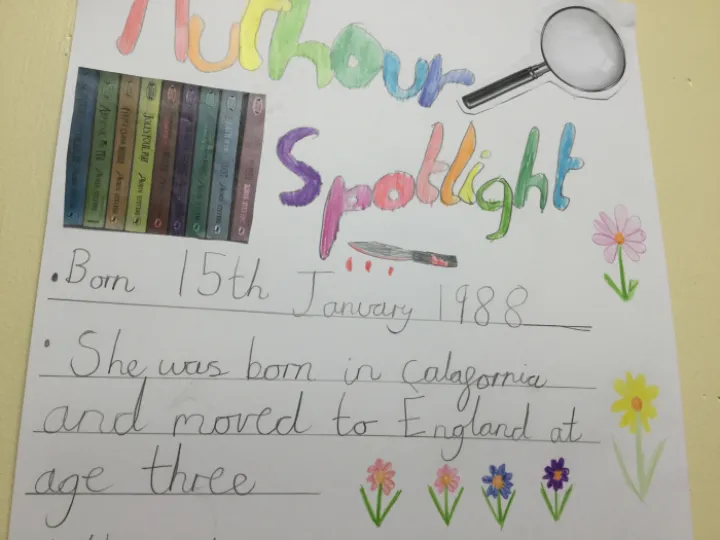 Authour
Spotlight
• Born 15th January 1988
• She was born in Calafornia
and moved to England at
age three